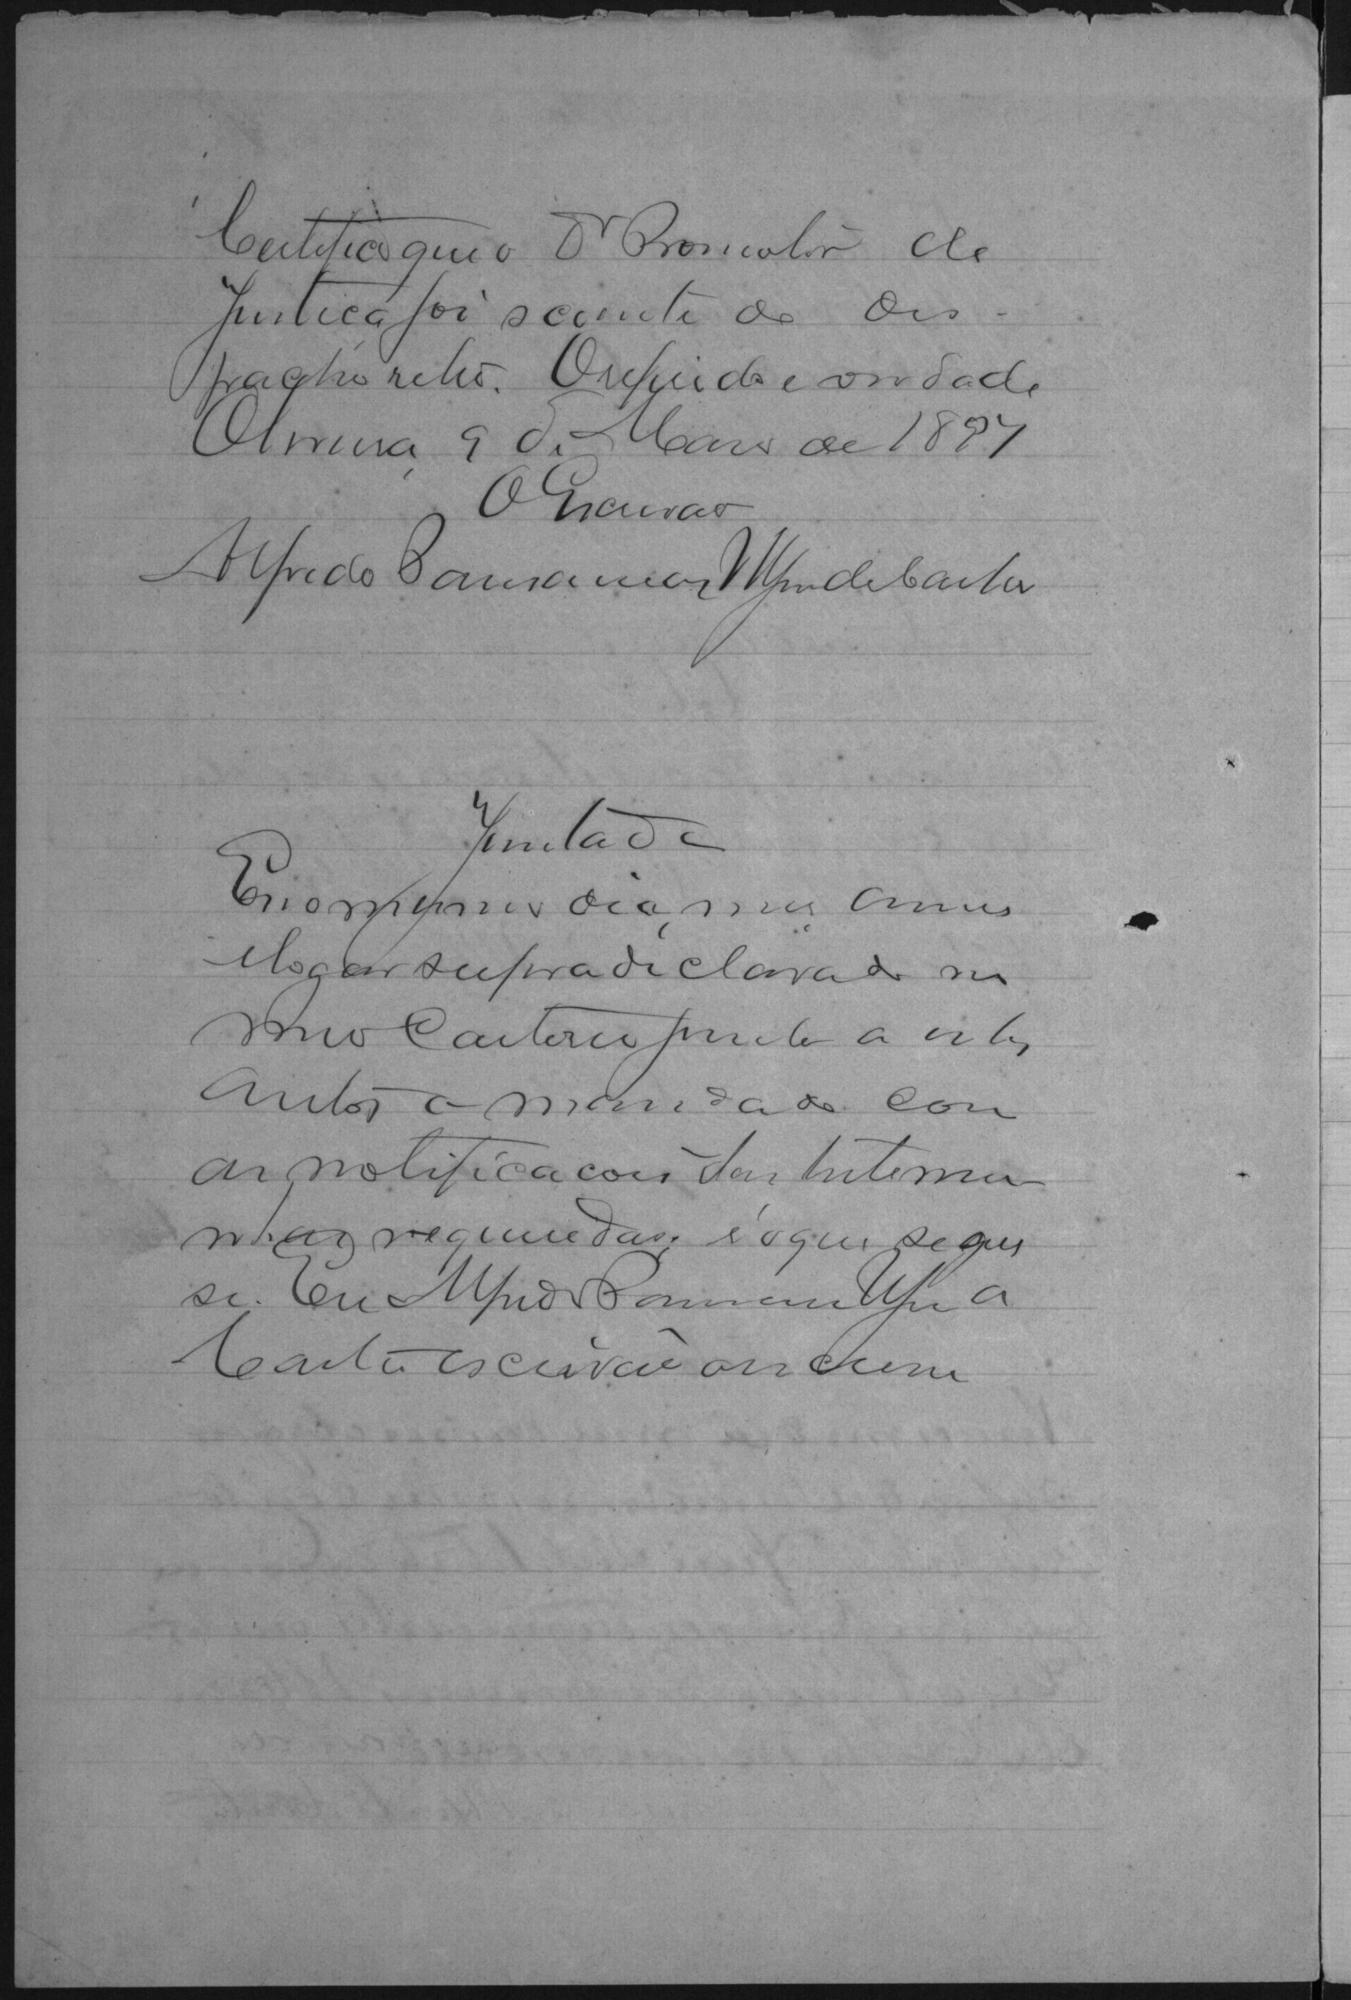 Certifico que o Dr Promotor de
Justiça foi sciente do des-
pacho retro. O referido e verdade
Oliveira, 9 de Março de 1897
O Escrivao
Alfredo
Juntada
E no mesmo dia, mez, anno
e logar supra declarado em
meo Cartorio junto a estes
autos o mandado com
as notificacois das testemu
nhas requeridas; é o que segue
se. Eu Alfredo
Castro escrivão o escrevi